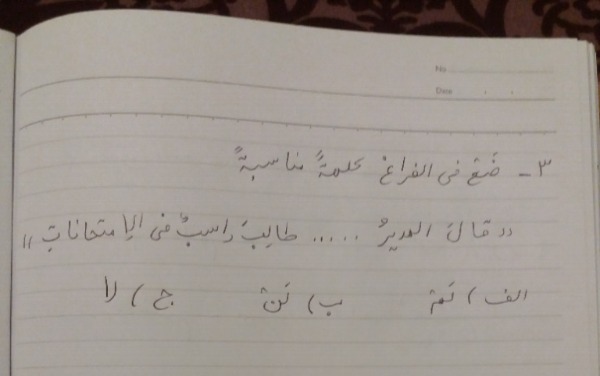 No
Date
٣- ضَعْ فی الفراغْ کلمةً مناسبةً
(( قالَ المدیرُ ..... طالِبَ راسبٌ فی الإمتحاناتِ ))
الف) لَمْ ب) لَنْ ج) لا